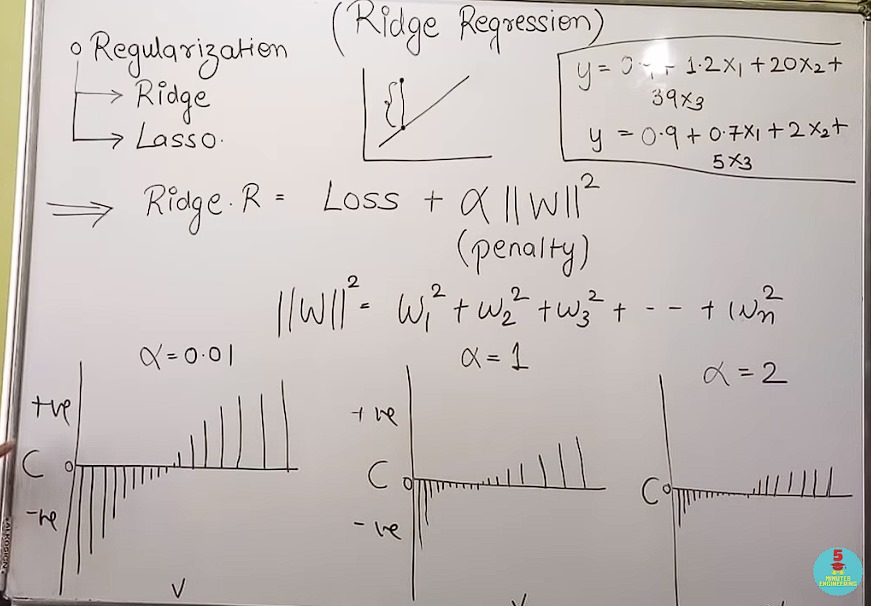 (Ridge Regression)
o Regularization
→ Ridge
→ Lasso.
y = 0. + 1.2x₁ + 20x₂ +
39x₃
y = 0.9 + 0.7x₁ + 2x₂ +
5x₃
⇒ Ridge.R = Loss + α ||W||²
(penalty)
||W||² = W₁² + W₂² + W₃² + - - + Wₙ²
α = 0.01
α = 1
α = 2
+ve
C 0
-ve
V
+ve
C 0
-ve
V
C 0
5
MINUTES
ENGINEERING